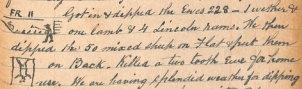 FR 11 Got in & dipped the Ewes 228 - 1 wether &
one lamb & 4 Lincoln rams. We then
dipped the 50 mixed sheep on Flat & put them
on Back. Killed a two tooth Ewe for home
use. We are having splendid weather for dipping